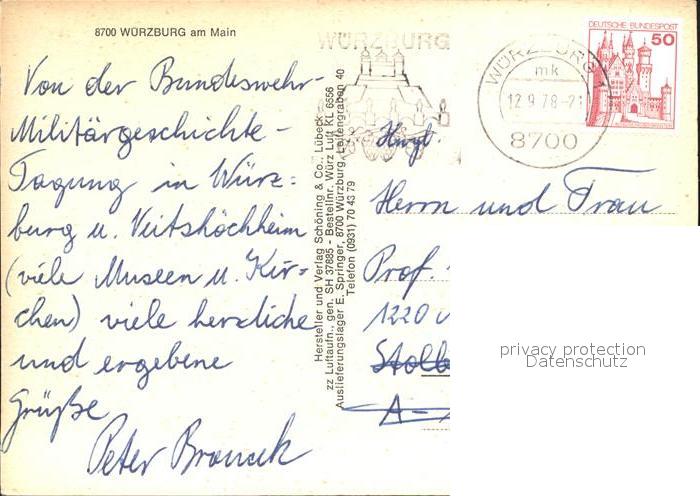 8700 WÜRZBURG am Main
Von der Bundeswehr-
Militärgeschichte-
Tagung in Würz-
burg u. Veitshöchheim
(viele Museen u. Kir-
chen) viele herzliche
und ergebene
Grüße
Peter
Hersteller und Verlag Schöning & Co., Lübeck
zz Luftaufn., gen. SH 37885 - Bestellnr. Würz Luft KL 6556
Auslieferungslager E. Springer, 8700 Würzburg, Leitengraben 40
Telefon (0931) 70 43 79
WÜRZBURG
WÜRZBURG 1
mk
12.9.78-21
8700
DEUTSCHE BUNDESPOST
50
Herrn und Frau
Prof.
1220
Stolb
A-
privacy protection
Datenschutz